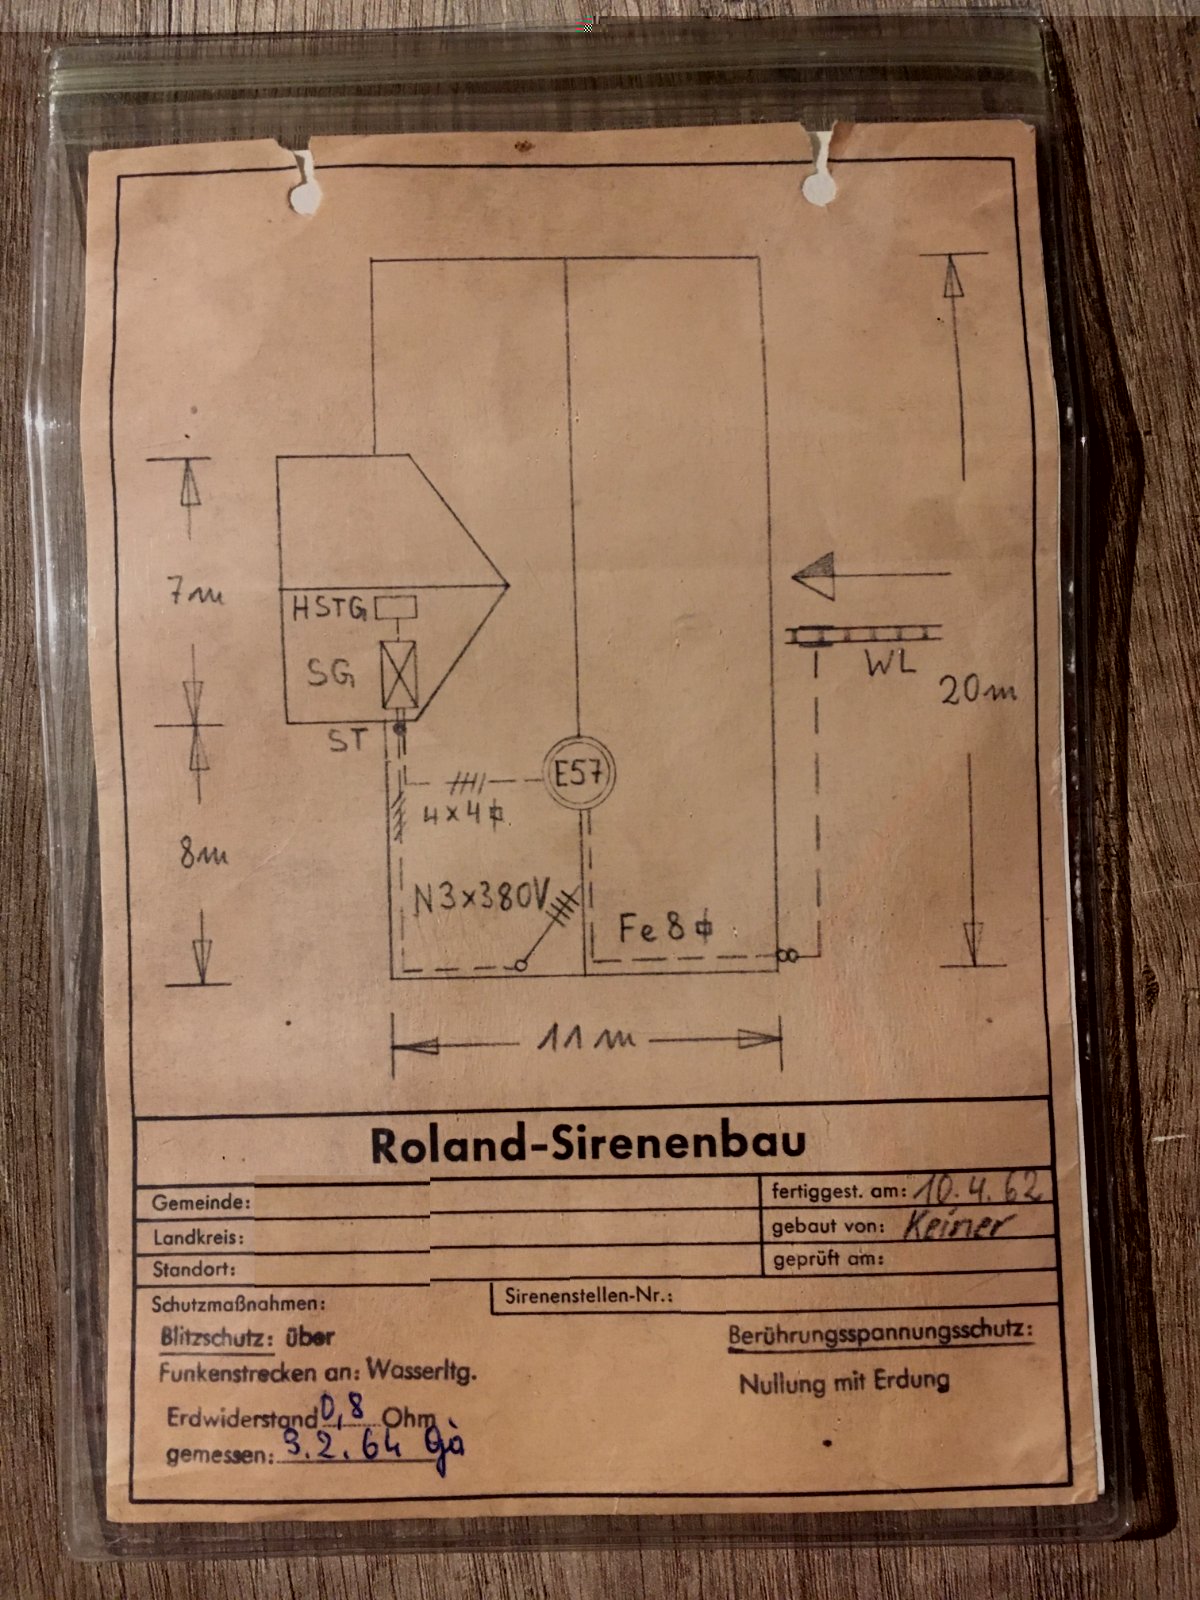 7m
HSTG
SG
WL
20m
ST
E57
4x4⌀
8m
N3x380V
Fe 8 ⌀
11m
Roland-Sirenenbau
Gemeinde:
Landkreis:
Standort:
fertiggest. am: 10.4.62
gebaut von: Keiner
geprüft am:
Schutzmaßnahmen:
Sirenenstellen-Nr.:
Blitzschutz: über
Funkenstrecken an: Wasserltg.
Erdwiderstand 0,8 Ohm
gemessen: 3.2.64 Gà
Berührungsspannungsschutz:
Nullung mit Erdung